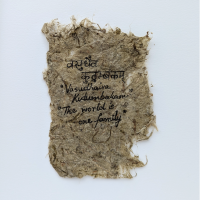 वसुधैव
कुटुम्बकम्
"Vasudhaiva
Kutumbakam"
"The world is
one family"